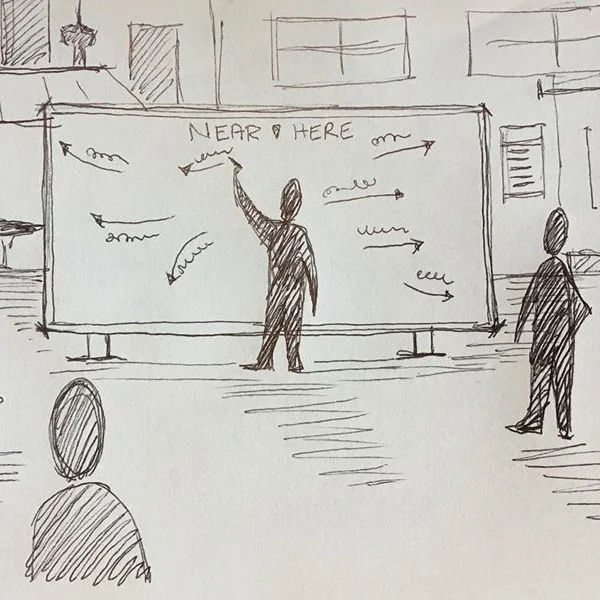 NEAR HERE